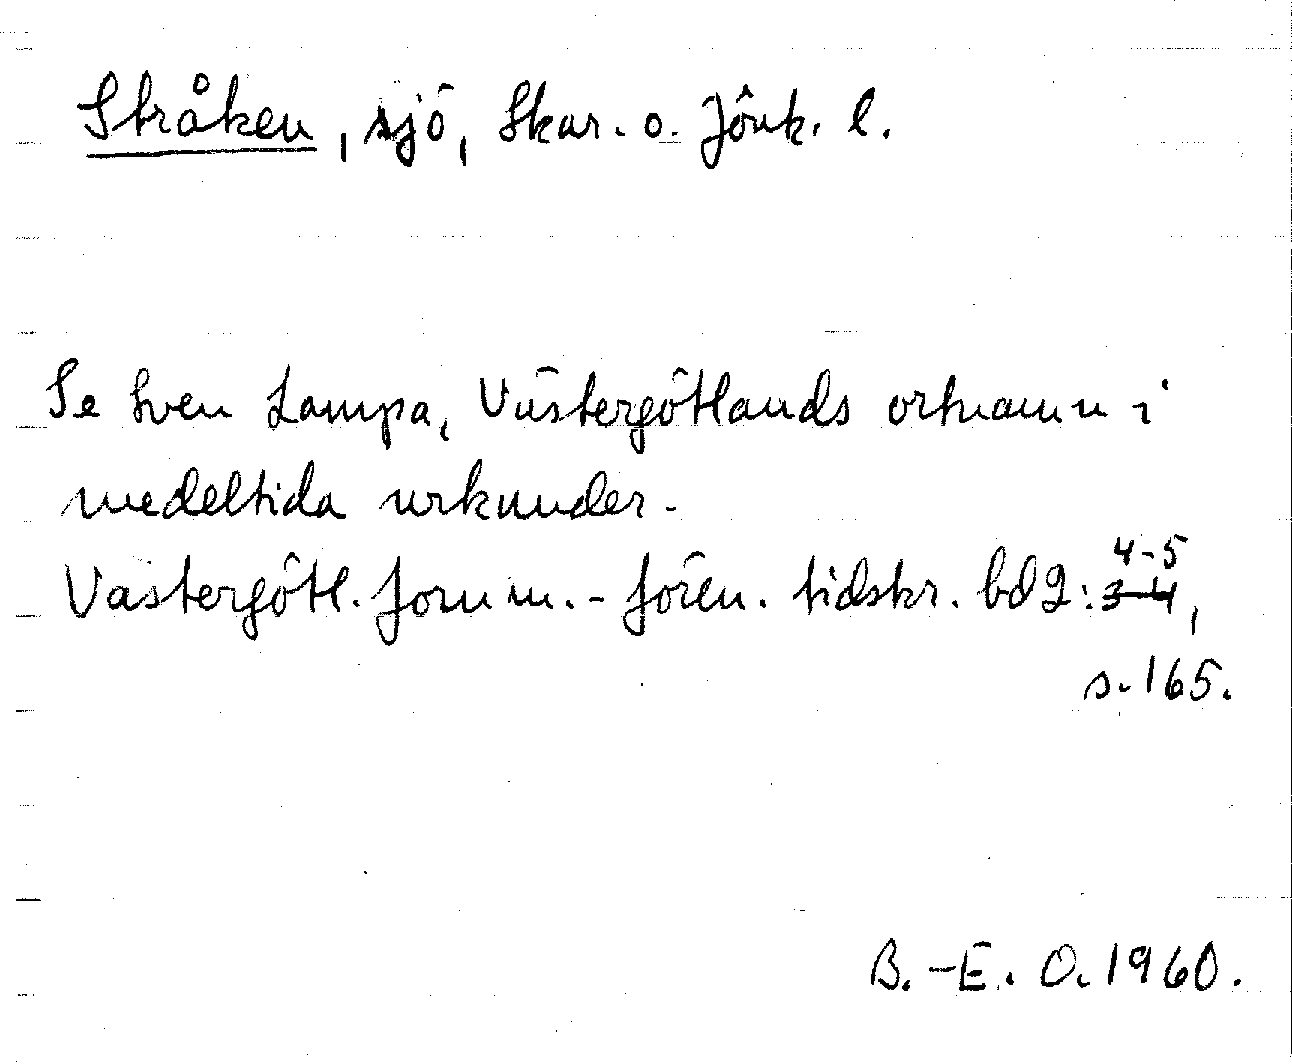 Stråken, sjö, Skar. o. Jönk. l.
Se Sven Lampa, Västergötlands ortnamn i
medeltida urkunder.
Västergötl. fornm.-fören. tidskr. bd 2: 3-4 4-5,
s. 165.
B.-E. O. 1960.